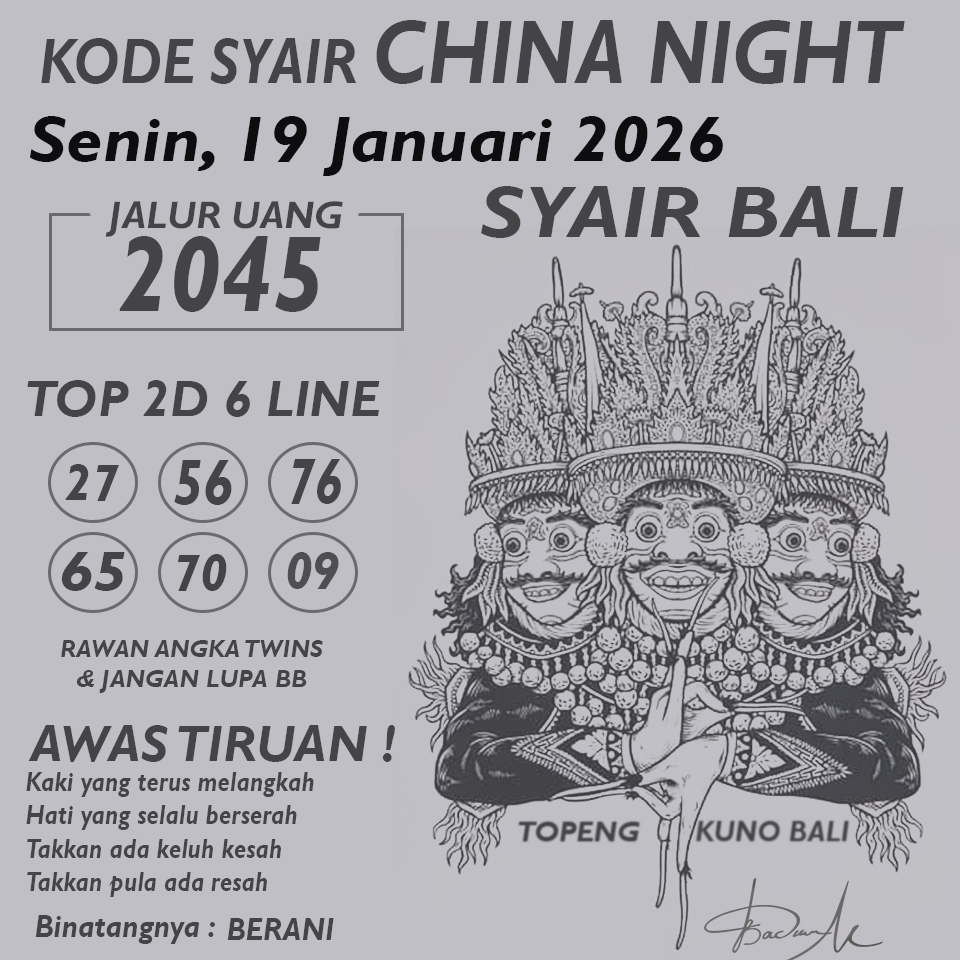 KODE SYAIR CHINA NIGHT
Senin, 19 Januari 2026
SYAIR BALI
JALUR UANG
2045
TOP 2D 6 LINE
27 56 76
65 70 09
RAWAN ANGKA TWINS
& JANGAN LUPA BB
AWAS TIRUAN !
Kaki yang terus melangkah
Hati yang selalu berserah
Takkan ada keluh kesah
Takkan pula ada resah
Binatangnya : BERANI
TOPENG KUNO BALI